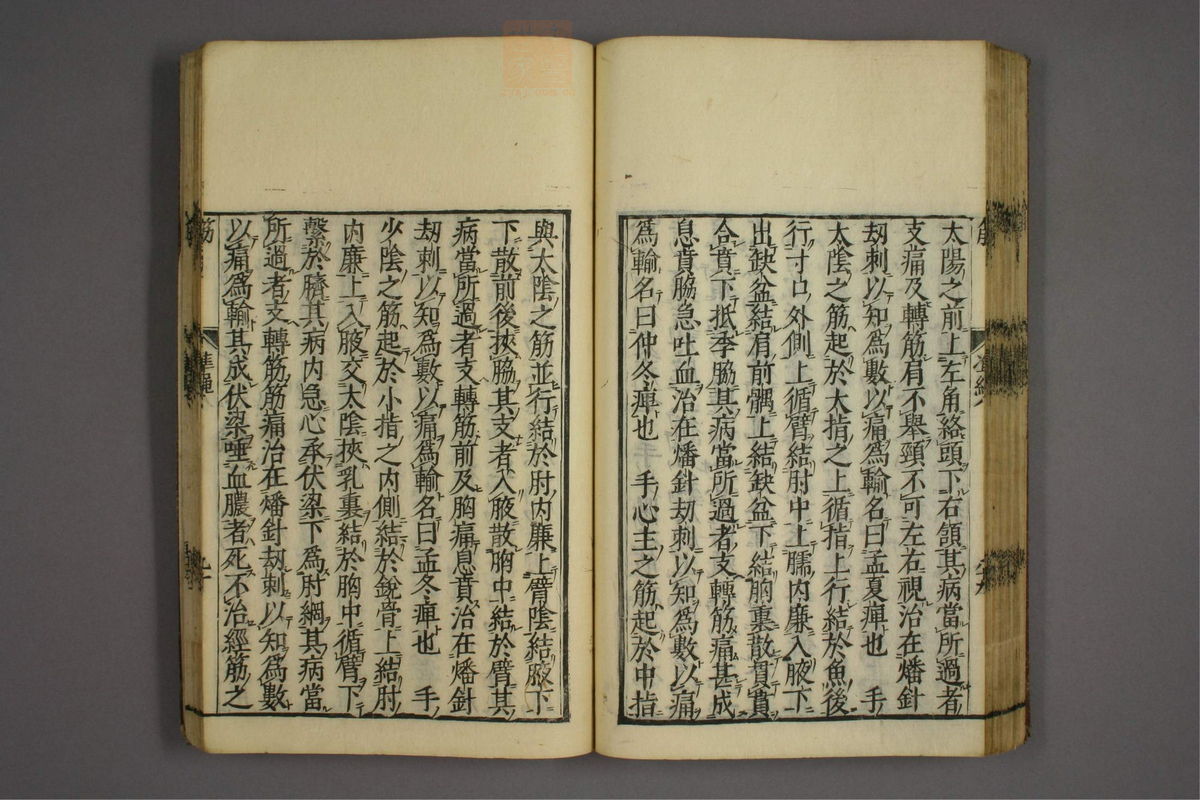 太陽之前上左角絡頭下右頷其病當所過者
支痛及轉筋肩不舉頸不可左右視治在燔針
劫刺以知爲數以痛爲輸名曰孟夏痺也　手
太陰之筋起於太指之上循指上行結於魚後
行寸口外側上循臂結肘中上臑內廉入腋下
出缺盆結肩前髃上結缺盆下結胸裏散貫賁
合賁下抵季脇其病當所過者支轉筋痛甚成
息賁脇急吐血治在燔針劫刺以知爲數以痛
爲輸名曰仲冬痺也　手心主之筋起於中指
與太陰之筋並行結於肘內廉上臂陰結腋下
下散前後挾脇其支者入腋散胸中結於臂其
病當所過者支轉筋前及胸痛息賁治在燔針
劫刺以知爲數以痛爲輸名曰孟冬痺也　手
少陰之筋起於小指之內側結於銳骨上結肘
內廉上入腋交太陰挾乳裏結於胸中循臂下
繫於臍其病內急心承伏梁下爲肘綱其病當
所過者支轉筋筋痛治在燔針劫刺以知爲數
以痛爲輸其成伏梁唾血膿者死不治經筋之
筋